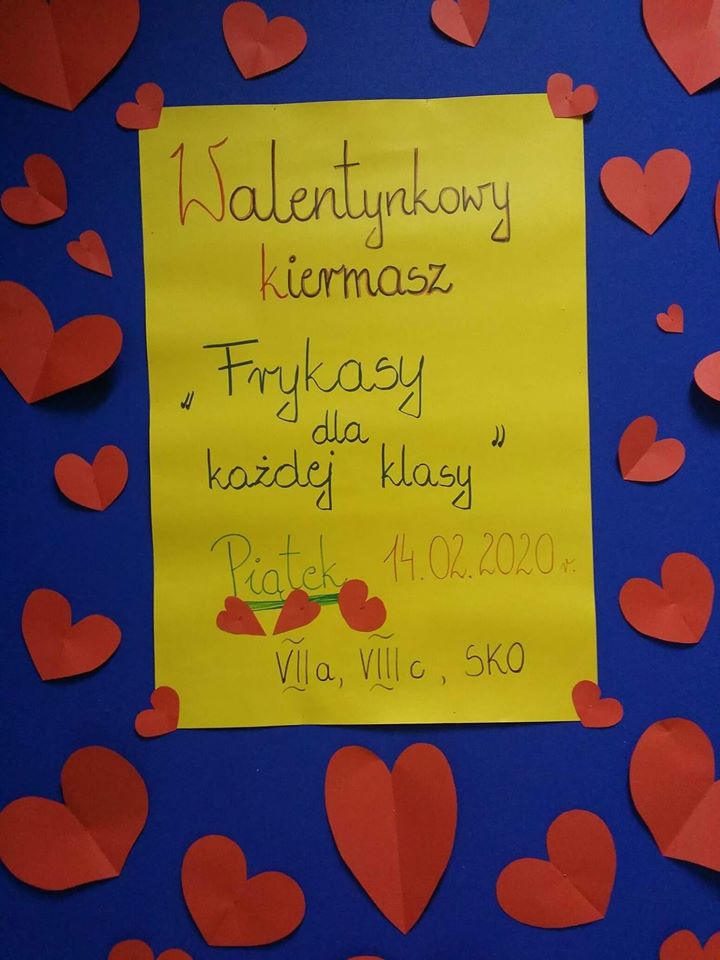 Walentynkowy
kiermasz
„Frykasy
dla
każdej klasy”
Piątek 14.02.2020r.
VIIa, VIIIc, SKO